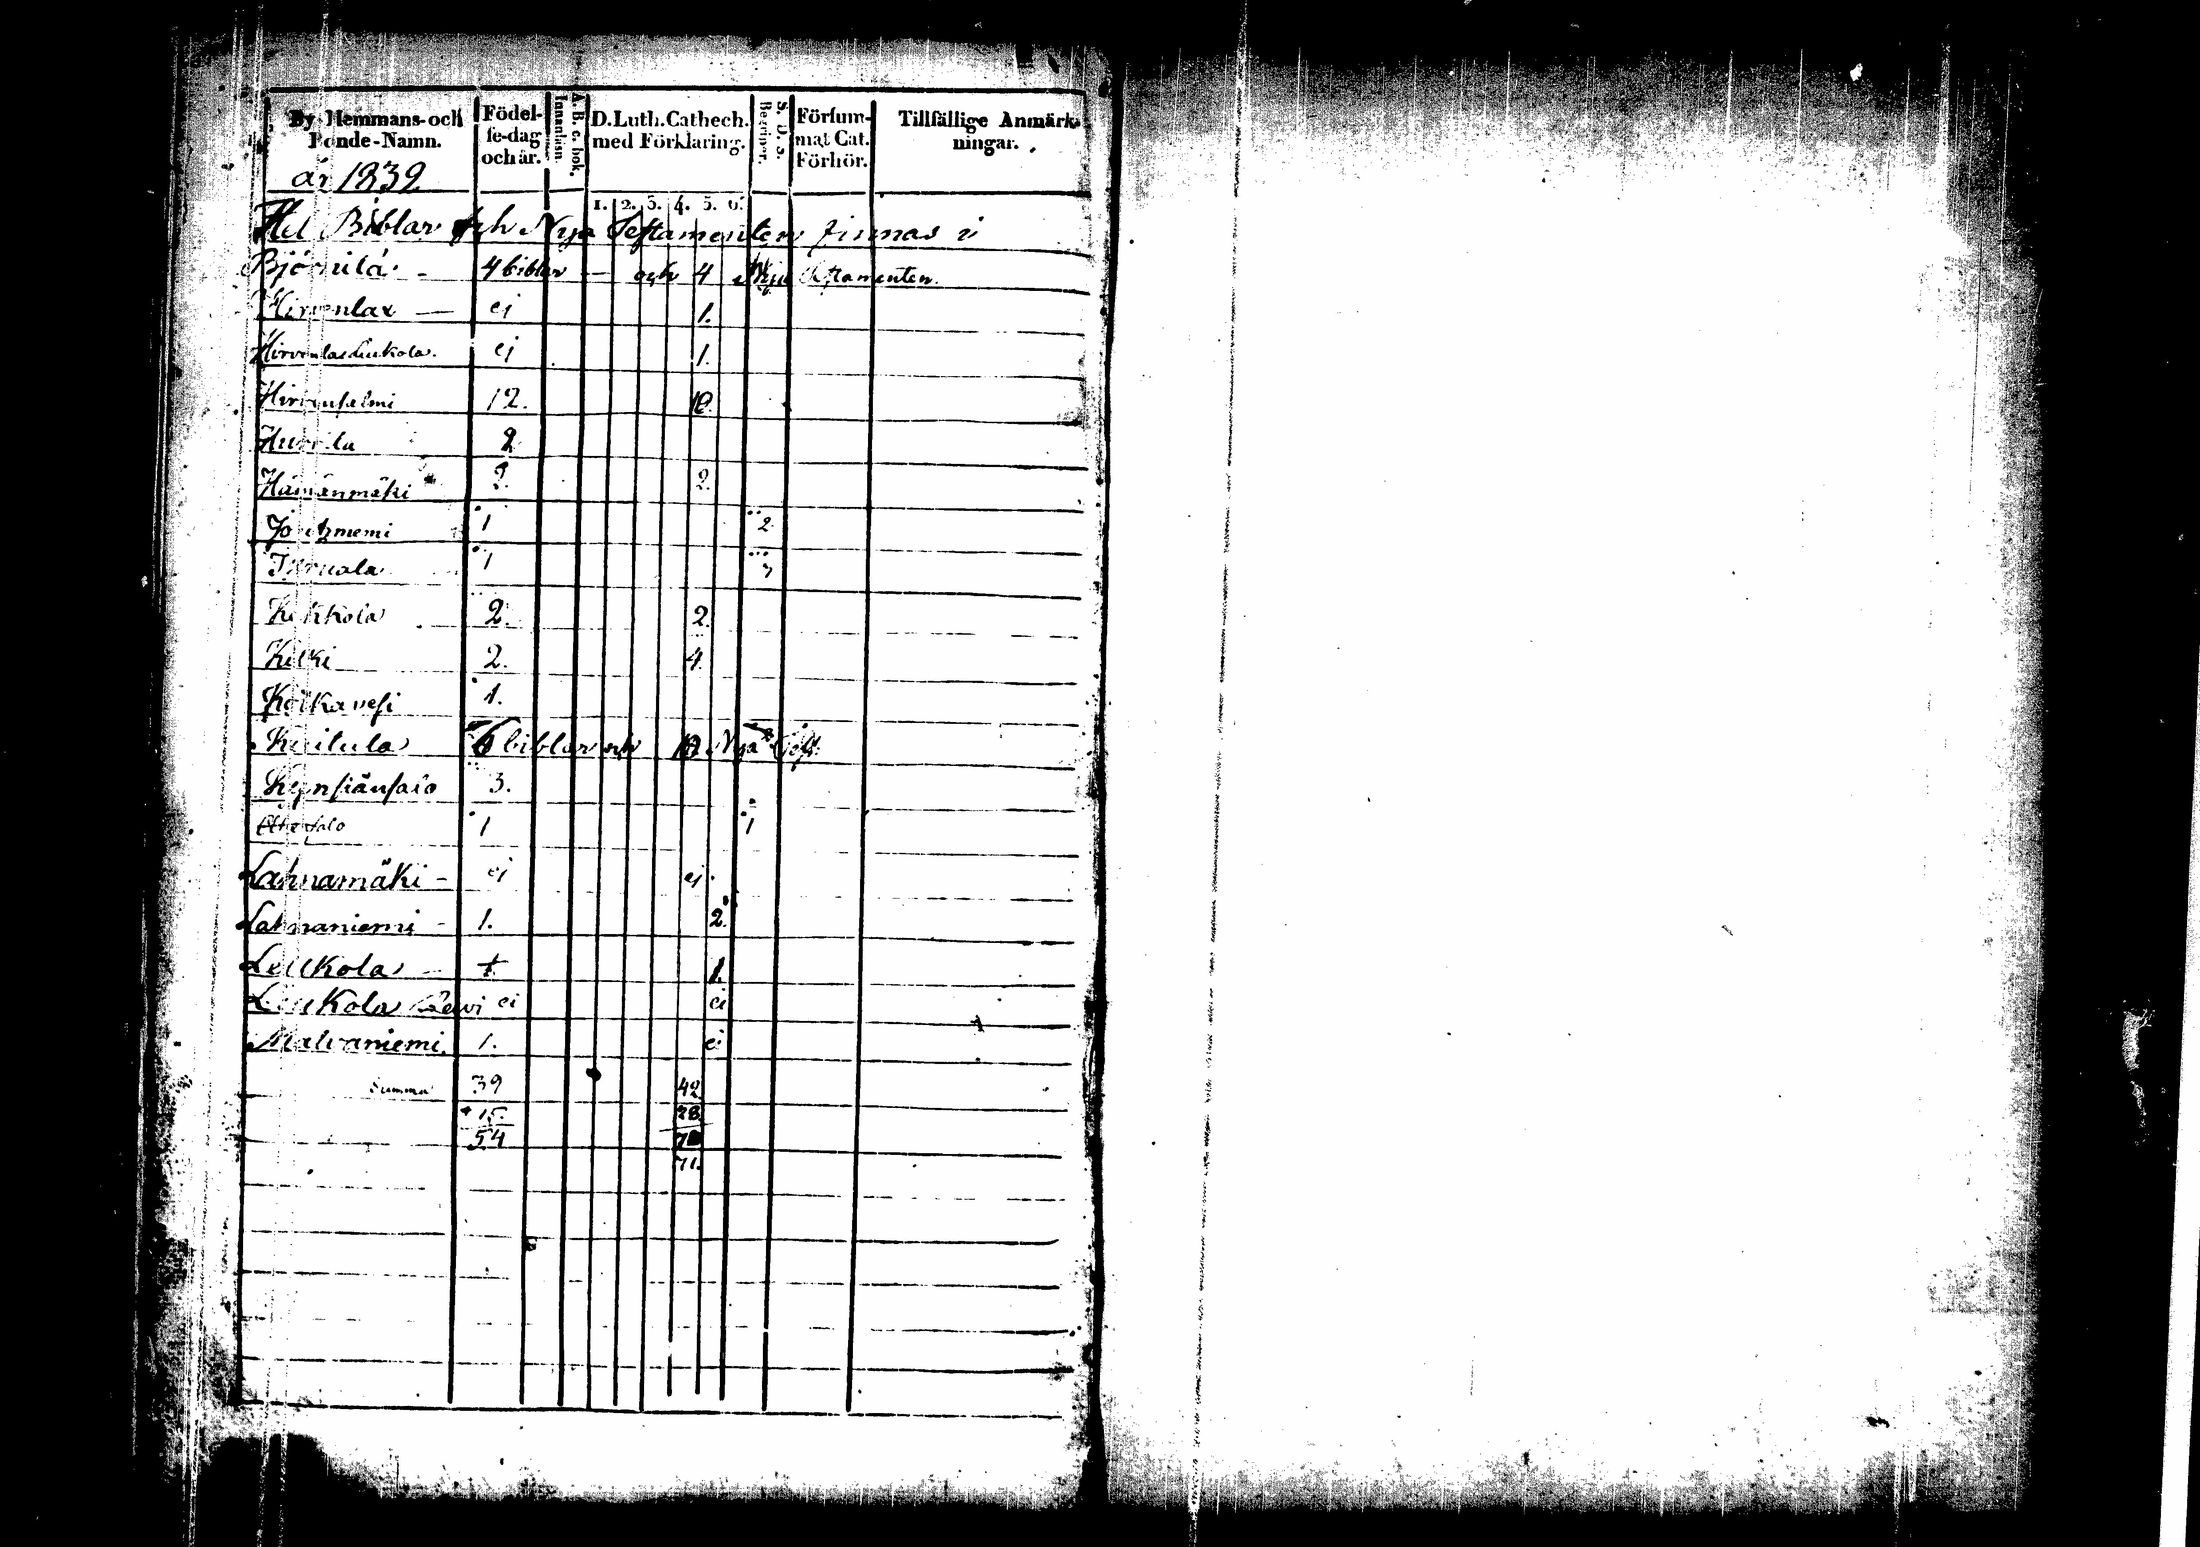 By-Hemmans-och Bonde-Namn. Födel-se-dag och år. A. B. c. bok, Innanläsn. D. Luth. Cathech. med Förklaring. S. D. S. Begriper. Försum-mat Cat. Förhör. Tillfällige Anmärk-ningar.
år 1839
1. 2. 3. 4. 5. 6.
Hel Biblar och Nya Testamenten finnas i
Björnilä - 4 biblar — och 4 Nya Testamenten.
Hirvenlax — ej 1.
Hirvenlax Leukola. ej 1.
Hirvensalmi 12. 10.
Hurula 2
Hämänmäki 2. 2.
1 2.
1
Kekkola 2. 2.
Kilki 2. 4.
Koikavesi 1.
Kuitula 6 biblar och Nya Test.
Kynsiänsalo 3.
1 1
Lahnamäki - ej ej
Lahnaniemi - 1. 2.
Leukola - 1.
Leukola ei ei
Malvaniemi. 1. ei
Summa 39 42
15. 28
54
71.